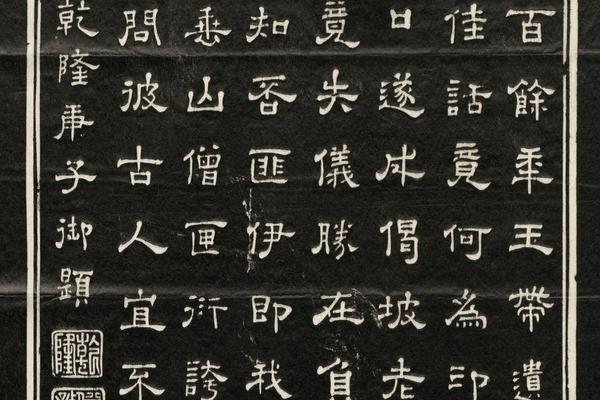 百餘年玉帶遺
佳話竟何為印
口遂成偈坡老
竟失儀勝在負
知否匪伊即我
垂山僧匣衍誇
問彼古人宜不
乾隆庚子御題
乾隆